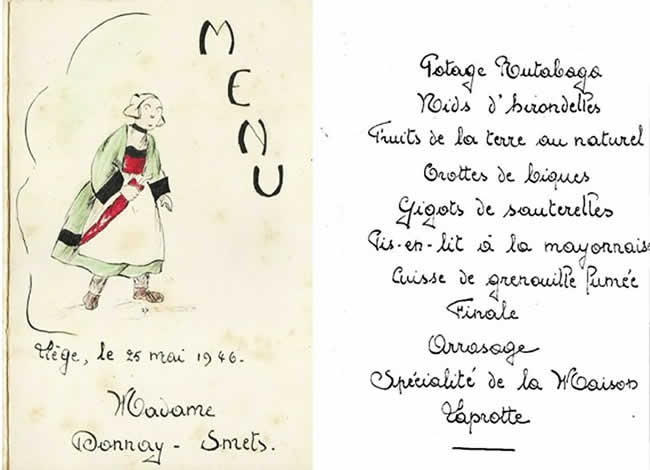 MENU
Liège, le 25 mai 1946.
Madame
Donnay - Smets.
Potage Rutabaga
Nids d'hirondelles
Fruits de la terre au naturel
Crottes de biques
Gigots de sauterelles
Pis-en-lit à la mayonnais
Cuisse de grenouille fumée
Finale
Arrosage
Spécialité de la Maison
Taprotte